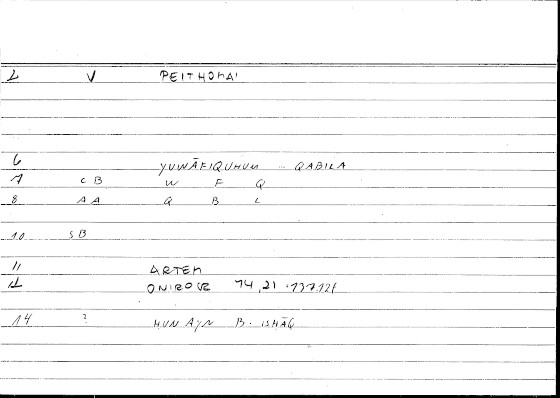 2 V PEITHOMAI
6 YUWĀFIQUHUM ... QABILA
7 CB W F Q
8 AA Q B L
10 SB
11 ARTEM
12 ONIROCR 14,21
14 ? HUNAYN B. ISHĀQ